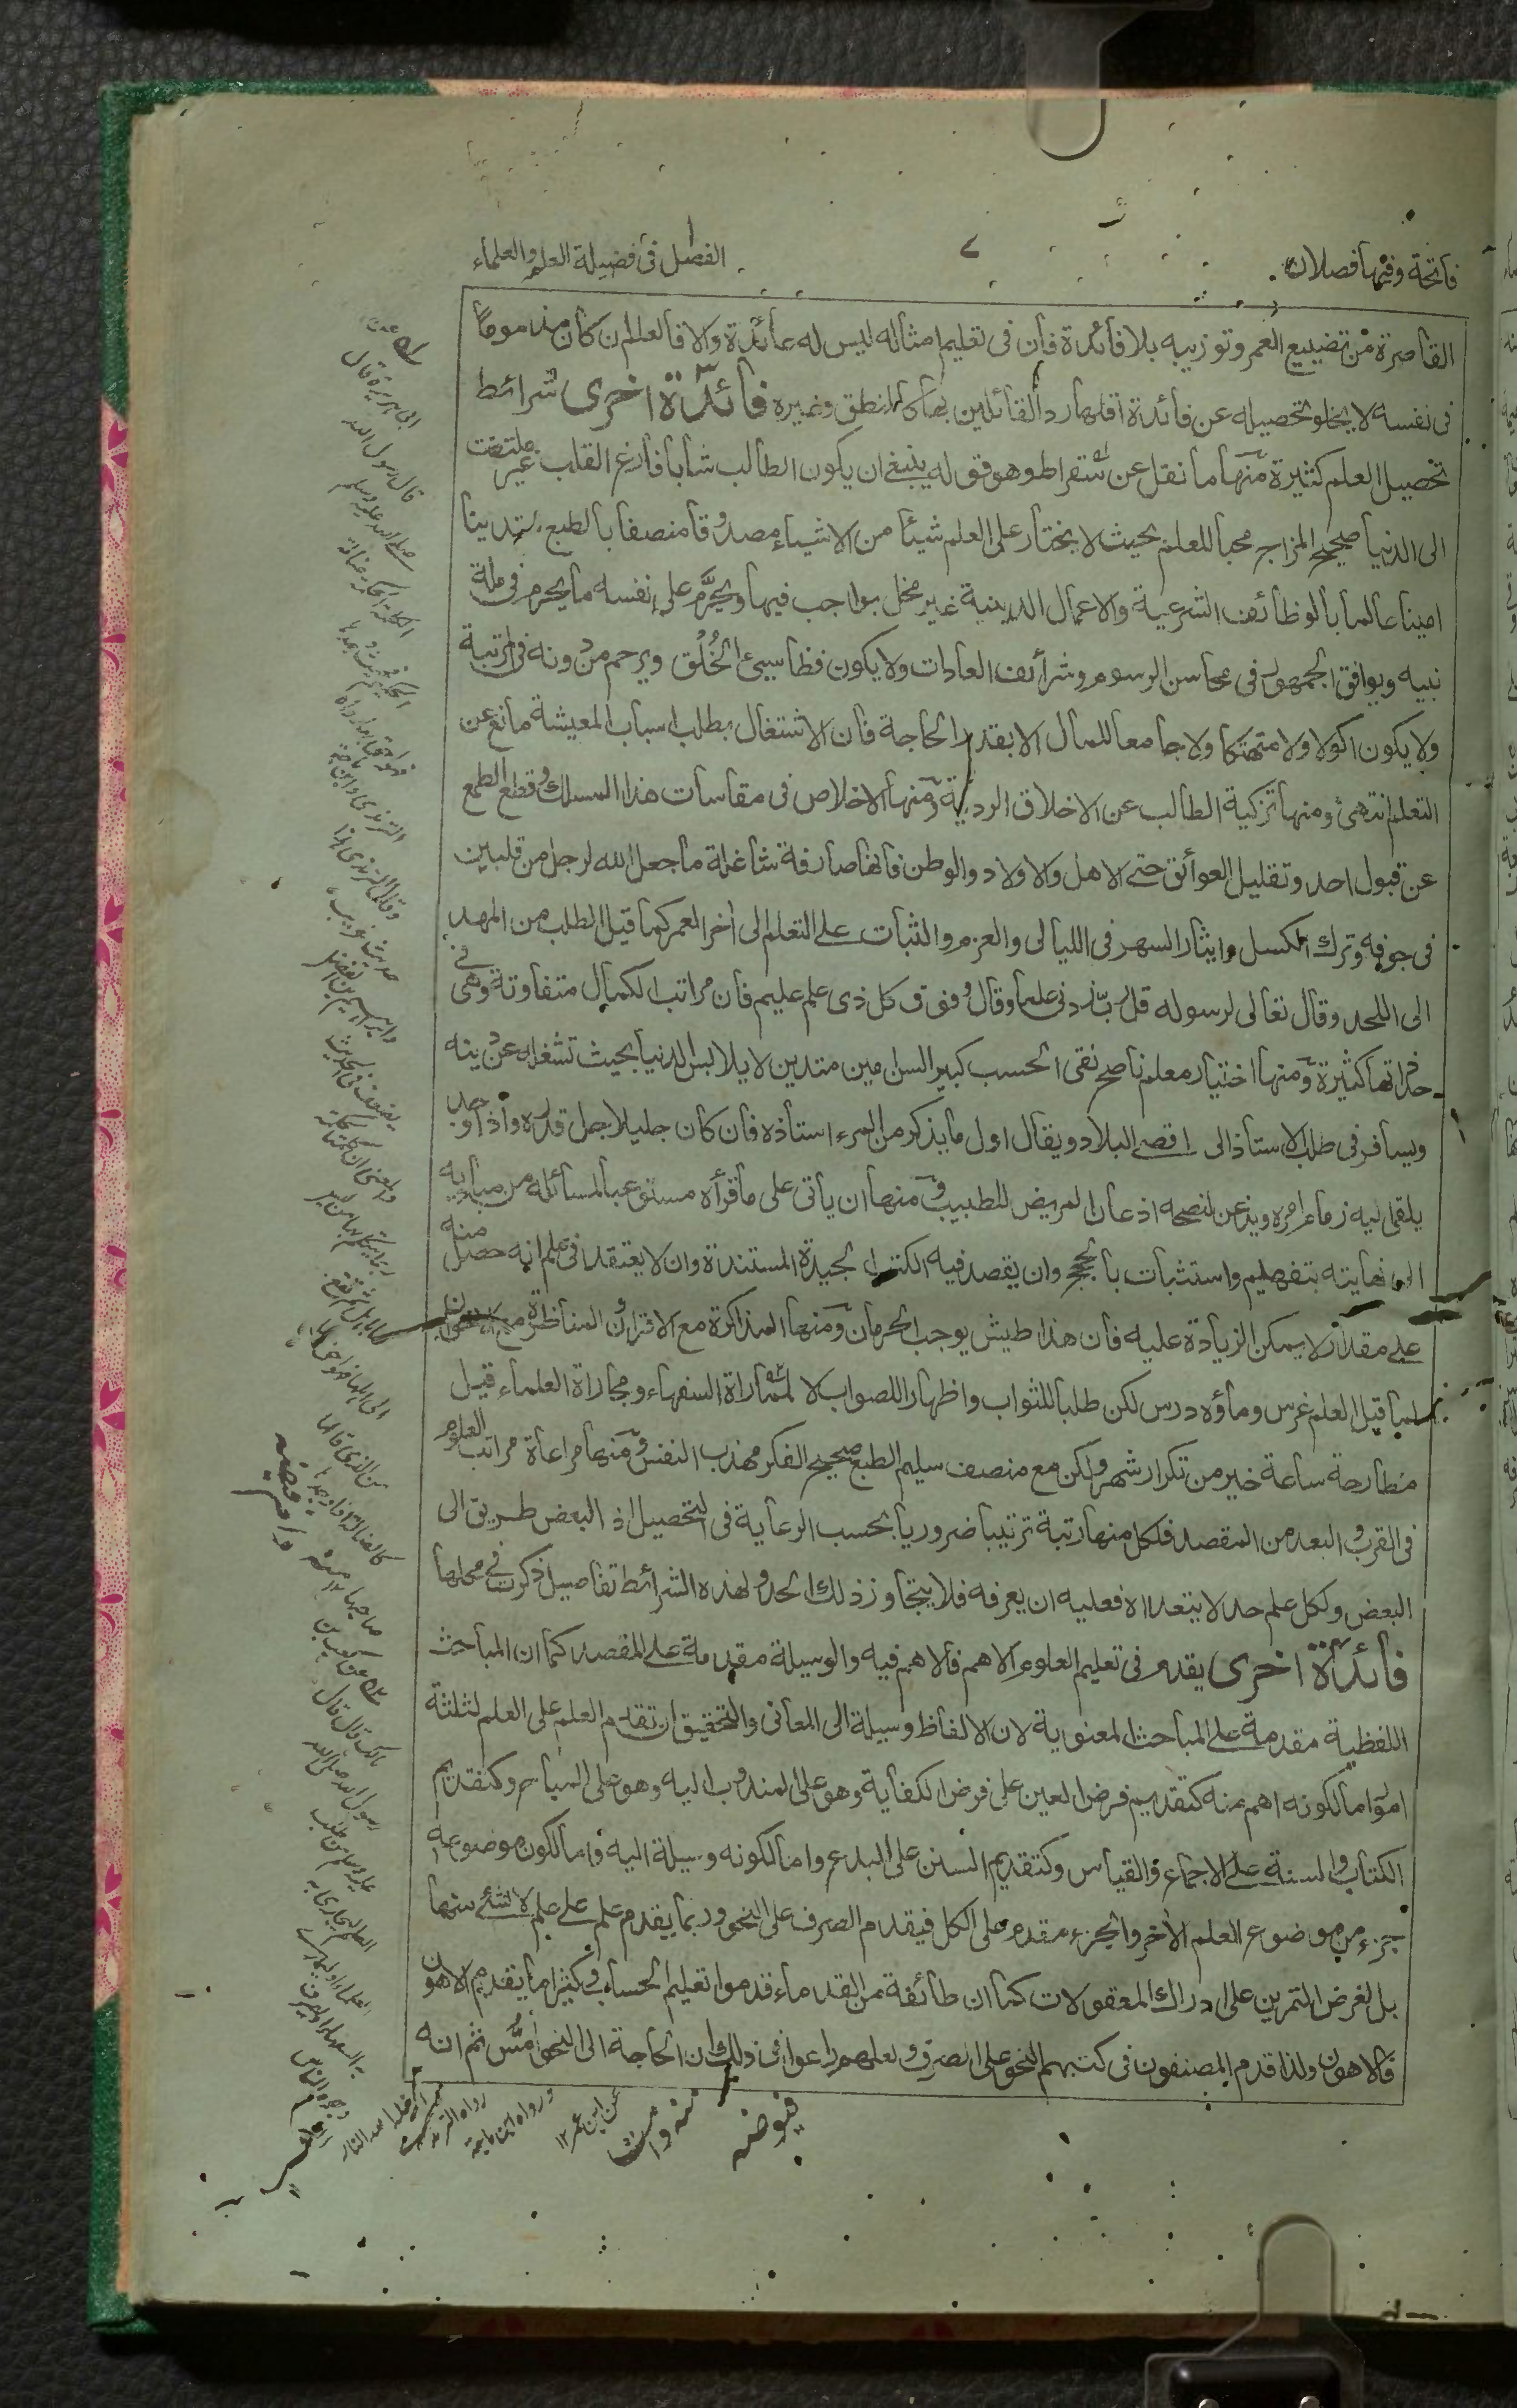 فاتحة وفيها فصلان
٧
الفصل فى فضيلة العلم والعلماء
القاصرة من تضييع العمر وتوزيبه بلا فائدة فان فى تعليم امثاله ليس له عائدة والا فالعلم ان كان مذموما
فى نفسه لا يخلو تحصيله عن فائدة اقلها رد القائلين بها كالمنطق وغيره فائدة اخرى شرائط
تحصيل العلم كثيرة منها ما نقل عن سقراط وهو قوله ينبغى ان يكون الطالب شابا فارغ القلب غير ملتفت
الى الدنيا صحيح المزاج محبا للعلم بحيث لا يختار على العلم شيئا من الاشياء صدوقا منصفا بالطبع متدينا
امينا عالما بالوظائف الشرعية والاعمال الدينية غير مخل بواجب فيها ويحرم على نفسه ما يحرم فى ملة
نبيه ويوافق الجمهور فى محاسن الرسوم وشرائف العادات ولا يكون فظا سيئ الخلق ويرحم من دونه فى المرتبة
ولا يكون اكولا ولا متهتكا ولا جامعا للمال الا بقدر الحاجة فان الاشتغال بطلب اسباب المعيشة مانع عن
التعلم انتهى ومنها تزكية الطالب عن الاخلاق الردية ومنها الاخلاص فى مقاسات هذا المسلك وقطع الطمع
عن قبول احد وتقليل العوائق حتى الاهل والاولاد والوطن فانها صارفة شاغلة ما جعل الله لرجل من قلبين
فى جوفه وترك الكسل وايثار السهر فى الليالى والعزم والثبات على التعلم الى اخر العمر كما قيل الطلب من المهد
الى اللحد وقال تعالى لرسوله قل رب زدنى علما وقال وفوق كل ذى علم عليم فان مراتب الكمال متفاوتة وهى فى
حد ذاتها كثيرة ومنها اختيار معلم ناصح نقى الحسب كبير السن مين متدين لا يلابس الدنيا بحيث تشغله عن دينه
ويسافر فى طلب الاستاذ الى اقصى البلاد ويقال اول ما يذكر من المرء استاذه فان كان جليلا جل قدره واذا وجد
يلقى اليه زمام امره ويذعن لنصحه اذعان المريض للطبيب ومنها ان يأتى على ما قرأه مستوعبا لمسائله من مباديه
الى نهايته بتفهيم واستثبات بالحجج وان يقصد فيه الكتب الجيدة المستندة وان لا يعتقد فى علم انه حصل منه
على مقدار لا يمكن الزيادة عليه فان هذا طيش يوجب الحرمان ومنها المذاكرة مع الاقران والمناظرة مع
لما قيل العلم غرس وماؤه درس لكن طلبا للثواب واظهارا للصواب لا لمماراة السفهاء ومجاراة العلماء قيل
مطارحة ساعة خير من تكرار شهر ولكن مع منصف سليم الطبع صحيح الفكر مهذب النفس ومنها مراعاة مراتب العلوم
فى القرب والبعد من المقصد فلكل منها رتبة ترتيبا ضروريا بحسب الرعاية فى التحصيل اذ البعض طريق الى
البعض ولكل علم حد لا يتعداه فعليه ان يعرفه فلا يتجاوز ذلك الحد ولهذه الشرائط تفاصيل ذكرت فى محلها
فائدة اخرى يقدم فى تعليم العلوم الاهم فالاهم فيه والوسيلة مقدمة على المقصد كما ان المباحث
اللفظية مقدمة على المباحث المعنوية لان الالفاظ وسيلة الى المعانى والتحقيق ان تقدم العلم على العلم لثلثة
امور اما لكونه اهم منه كتقديم فرض العين على فرض الكفاية وهو على المندوب اليه وهو على المباح وكتقديم
الكتاب والسنة على الاجماع والقياس وكتقديم السنن على البدع واما لكونه وسيلة اليه واما لكون موضوعه
جزء من موضوع العلم الاخر والجزء مقدم على الكل فيقدم الصرف على النحو وربما يقدم علم على علم لا لشئ منها
بل لغرض التمرين على ادراك المعقولات كما ان طائفة من القدماء قدموا تعليم الحساب وكثيرا ما يقدم الاهون
فالاهون ولذا قدم المصنفون فى كتبهم النحو على الصرف ولعلهم راعوا فى ذلك ان الحاجة الى النحو امس ثم انه
ابى هريرة قال
قال رسول الله
صلى الله عليه وسلم
الترمذى وابن ماجة
حديث غريب
مالك قال قال
رسول الله صلى الله
عليه وسلم من طلب
العلم ليجارى به
رواه الترمذى
ورواه ابن ماجة
عن ابن عمر ١٢